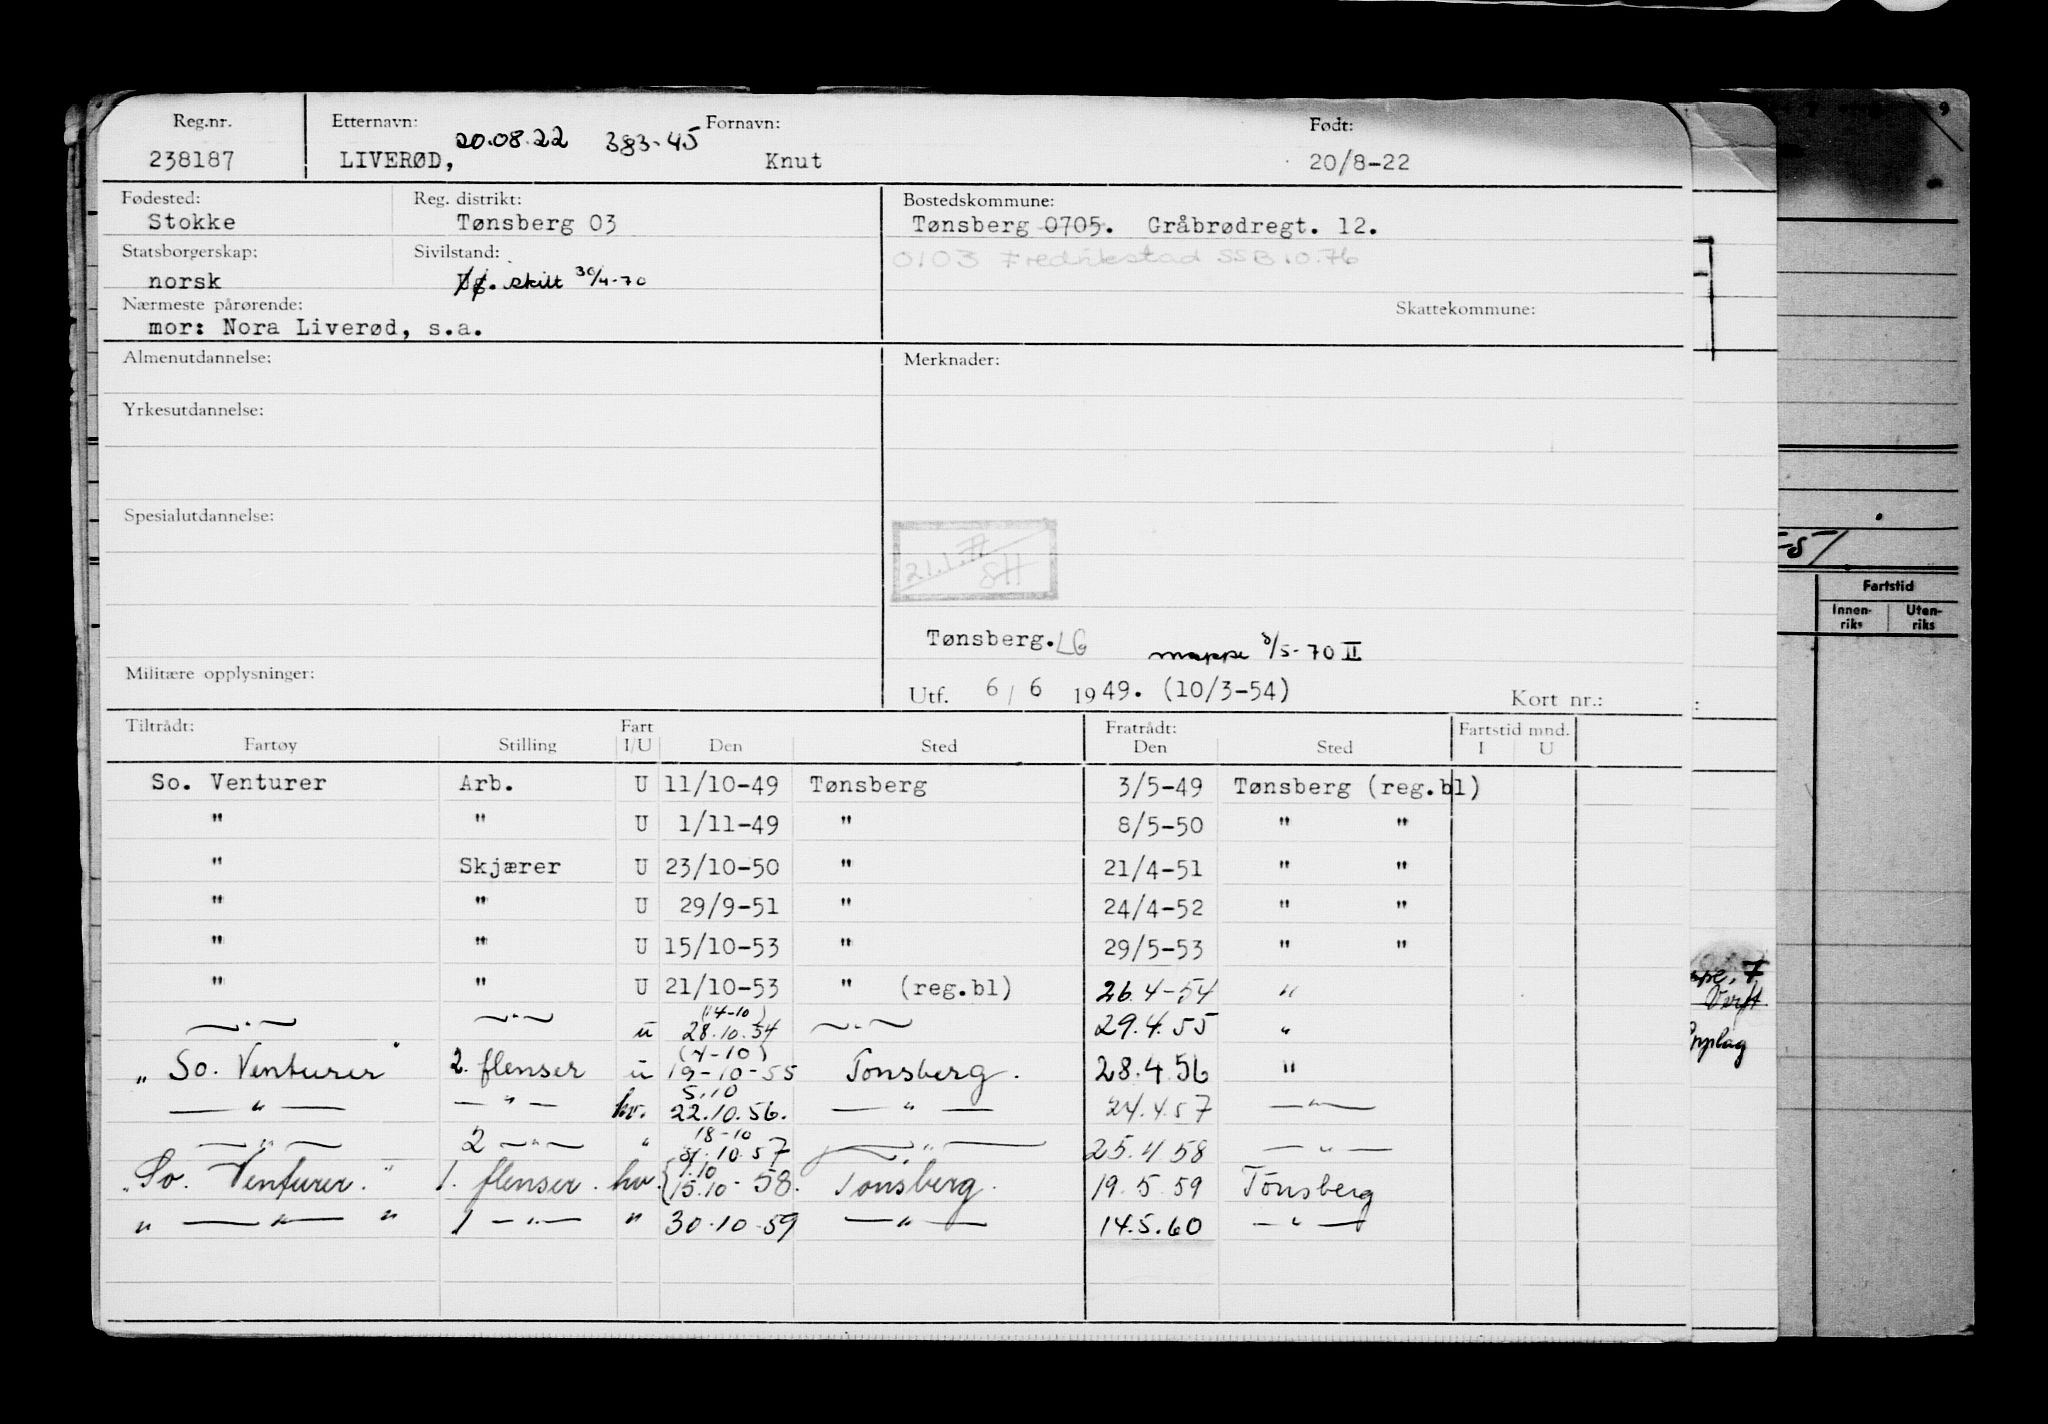 Reg.nr. Etternavn: Fornavn: Født:
20.08.22 383-45
238187 LIVERØD, Knut 20/8-22
Fødested: Reg. distrikt: Bostedskommune:
Stokke Tønsberg 03 Tønsberg 0705. Gråbrødregt. 12.
Statsborgerskap: Sivilstand: 0103 Fredrikstad SSB 10.76
norsk skilt 30/4-70
Nærmeste pårørende: Skattekommune:
mor: Nora Liverød, s.a.
Almenutdannelse: Merknader:
Yrkesutdannelse:
Spesialutdannelse:
21.1.77
SH
Tønsberg. LG mappe 8/5-70 II
Militære opplysninger:
Utf. 6/6 1949. (10/3-54) Kort nr.:
Tiltrådt: Fart Fratrådt: Fartstid mnd.
Fartøy Stilling I/U Den Sted Den Sted I U
So. Venturer Arb. U 11/10-49 Tønsberg 3/5-49 Tønsberg (reg.bl)
" " U 1/11-49 " 8/5-50 " "
" Skjærer U 23/10-50 " 21/4-51 " "
" " U 29/9-51 " 24/4-52 " "
" " U 15/10-53 " 29/5-53 " "
" " U 21/10-53 " (reg.bl) 26.4-54 "
(14-10)
—"— —"— u 28.10.54 —"— 29.4.55 "
(4-10)
"So. Venturer" 2. flenser u 19-10-55 Tønsberg. 28.4.56 "
5.10
—"— —"— hv. 22.10.56. —"— 24.4.57 —"—
18-10
—"— 2 —"— " 31.10.57 —"— 25.4 58 —"—
1.10
"So. Venturer." 1. flenser. hv. 15.10-58. Tønsberg. 19.5.59 Tönsberg
" —"— " 1 —"— " 30.10.59 —"— 14.5.60 —"—
-51
Fartstid
Innen-riks Uten-riks
Opplag
9